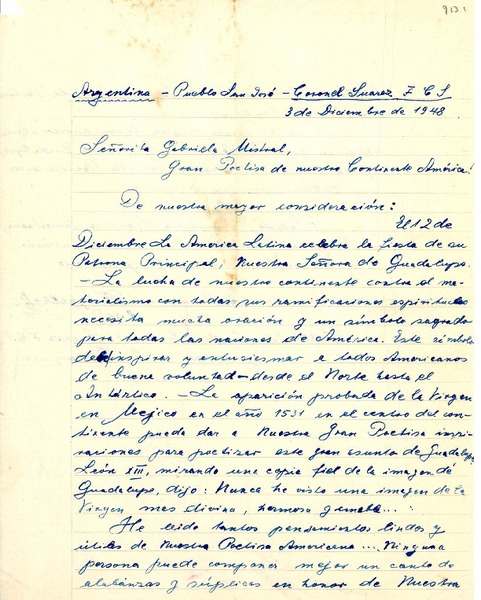 9131
Argentina - Pueblo San José - Coronel Suarez F C S
3 de Diciembre de 1948
Señorita Gabriela Mistral,
Gran Poetisa de nuestro Continente América!
De nuestra mayor consideración:
El 12 de
Diciembre La America Latina celebra la fiesta de su
Patrona Principal, Nuestra Señora de Guadalupe.
- La lucha de nuestro continente contra el ma-
terialismo con todas sus ramificaciones espirituales
necesita mucha oración y un símbolo sagrado
para todas las naciones de América. Este símbolo
debe inspirar y entusiasmar a todos Americanos
de buena voluntad - desde el Norte hasta el
Antártico. - La aparición probada de la Virgen
en Mejico en el año 1531 en el centro del con-
tinente puede dar a Nuestra Gran Poetisa inspi-
raciones para poetizar este gran asunto de Guadalupe
León XIII, mirando una copia fiel de la imagen de
Guadalupe, dijo: Nunca he visto una imagen de la
Virgen mas divina, hermosa y noble...:
He leido tantos pensamientos lindos y
útiles de Nuestra Poetisa Americana... Ninguna
persona puede componer mejor un canto de
alabanzas y súplicas en honor de Nuestra